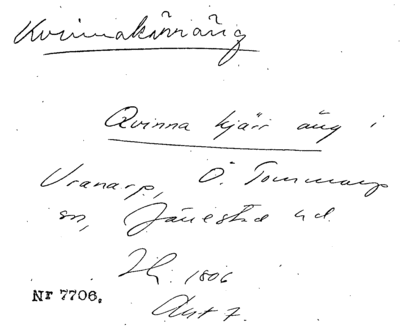 Kvinnakärräng
Qvinna kjärr äng i
Vranarp, Ö. Tommarp
sn, Järrestad hd.
1806
Akt 7.
Nr 7706.